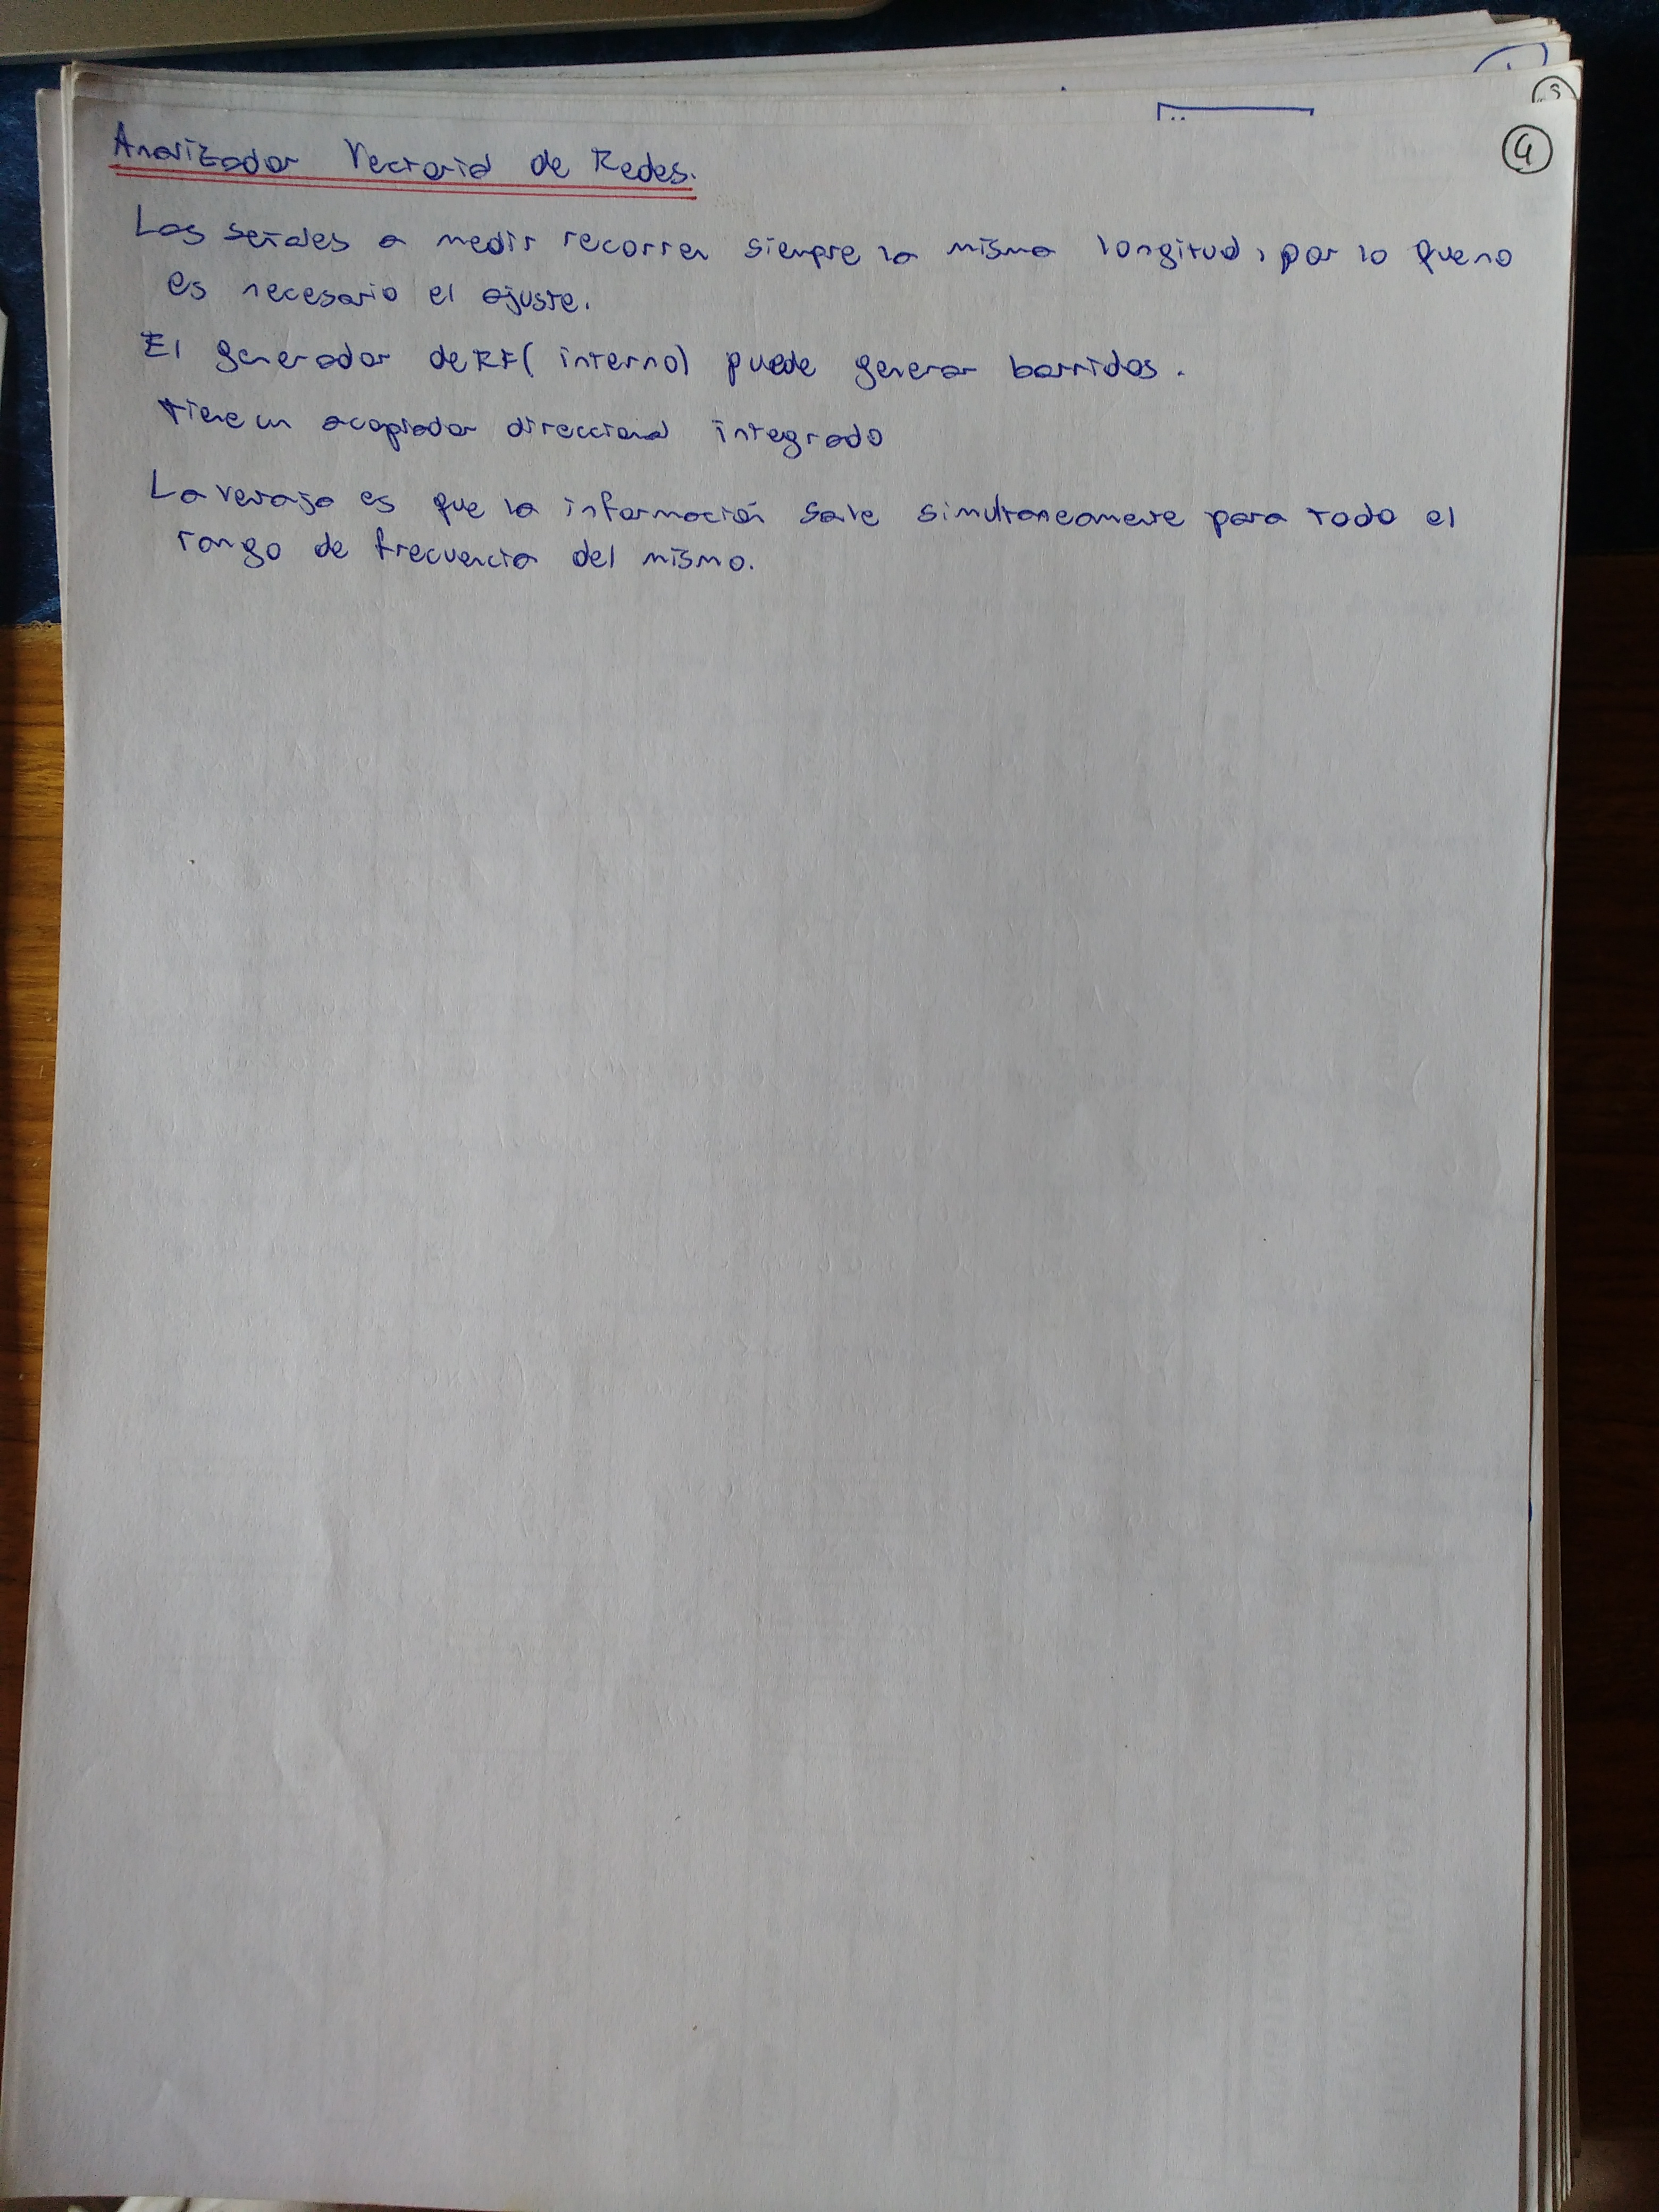 4
Analizador Vectorial de Redes.
Las señales a medir recorren siempre la misma longitud, por lo que no
es necesario el ajuste.
El generador de RF (interno) puede generar barridos.
tiene un acoplador direccional integrado
La ventaja es que la información sale simultaneamente para todo el
rango de frecuencia del mismo.